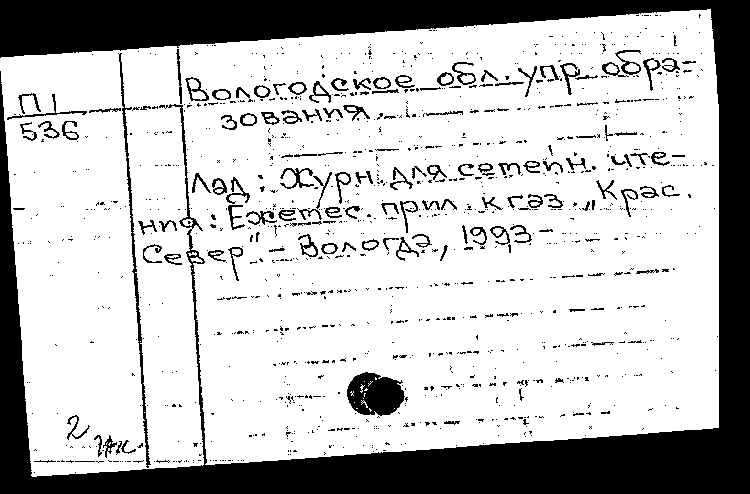 П1
536
Вологодское обл. упр. обра-
зования
Лад: Журн. для семейн. чте-
ния: Ежемес. прил. к газ. „Крас.
Север". - Вологда, 1993 -
2